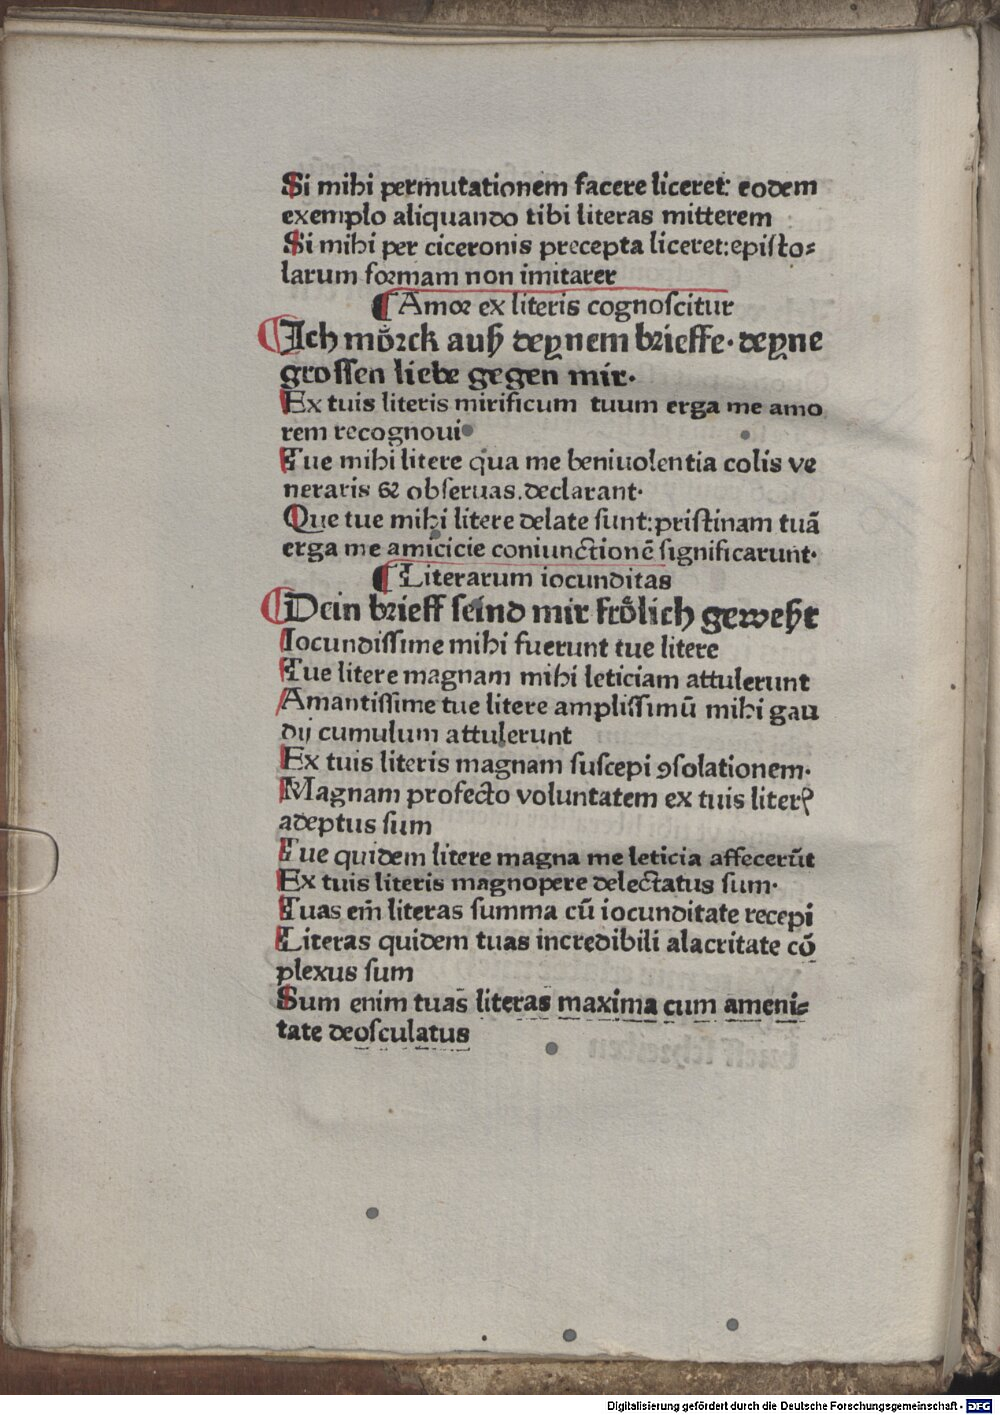 Si mihi permutationem facere liceret: eodem
exemplo aliquando tibi literas mitterem
Si mihi per ciceronis precepta liceret: episto⸗
larum formam non imitarer
¶ Amor ex literis cognoscitur
Ich moͤrck auß deynem brieffe· deyne
grossen liebe gegen mir·
Ex tuis literis mirificum tuum erga me amo
rem recognoui
Tue mihi litere qua me beniuolentia colis ve
neraris & obseruas. declarant·
Que tue mihi litere delate sunt: pristinam tuā
erga me amicicie coniunctionē significarunt·
¶ Literarum iocunditas
Dein brieff seind mir froͤlich geweßt
Iocundissime mihi fuerunt tue litere
Tue litere magnam mihi leticiam attulerunt
Amantissime tue litere amplissimū mihi gau
dij cumulum attulerunt
Ex tuis literis magnam suscepi ꝯsolationem·
Magnam profecto voluntatem ex tuis literꝭ
adeptus sum
Tue quidem litere magna me leticia affecerūt
Ex tuis literis magnopere delectatus sum·
Tuas em̄ literas summa cū iocunditate recepi
Literas quidem tuas incredibili alacritate cō
plexus sum
Sum enim tuas literas maxima cum ameni⸗
tate deosculatus
Digitalisierung gefördert durch die Deutsche Forschungsgemeinschaft - DFG